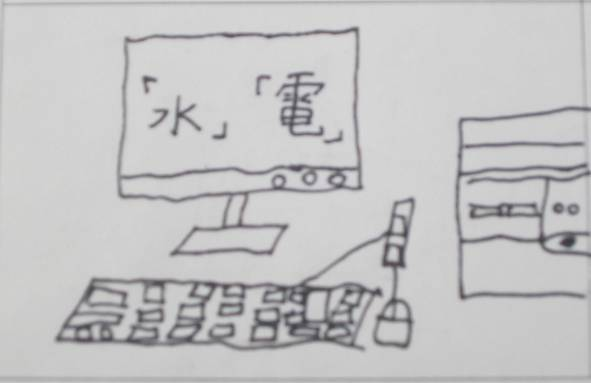 「水」「電」